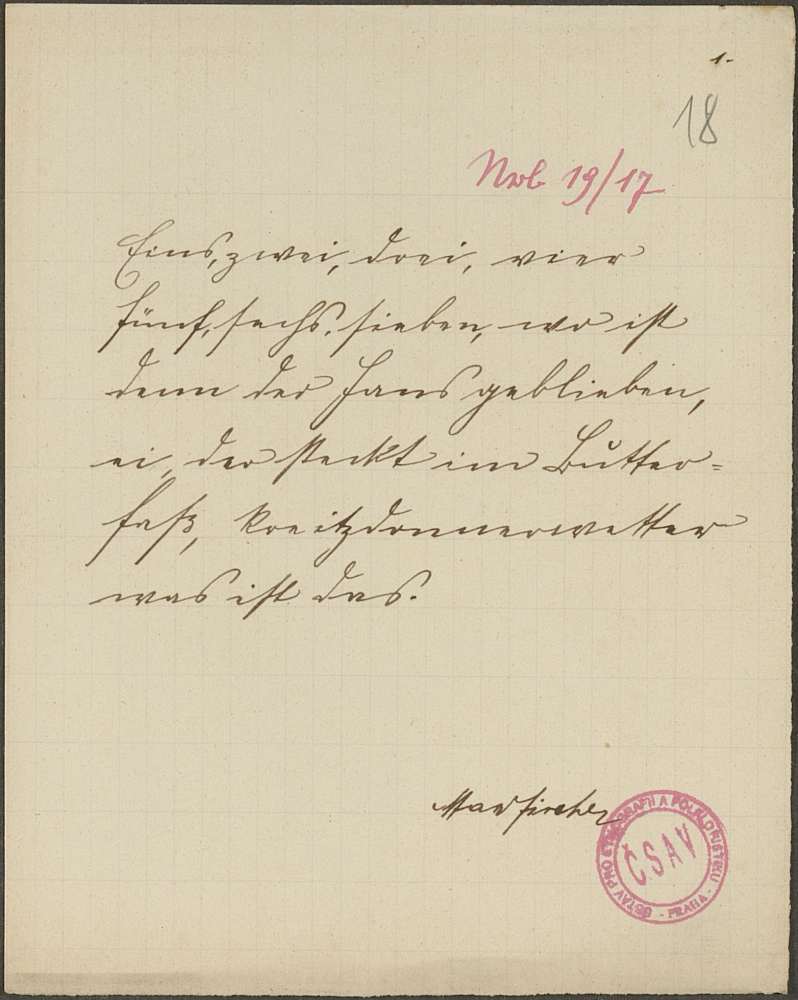 1.
18
Nrb 19/17
Eins, zwei, drei, vier
fünf, sechs, sieben, wo ist
denn der Hans geblieben,
ei, der steckt im Butter=
faß, kreitzdonnerwetter
was ist das.
ÚSTAV PRO ETNOGRAFII A FOLKLORISTIKU - PRAHA -
ČSAV